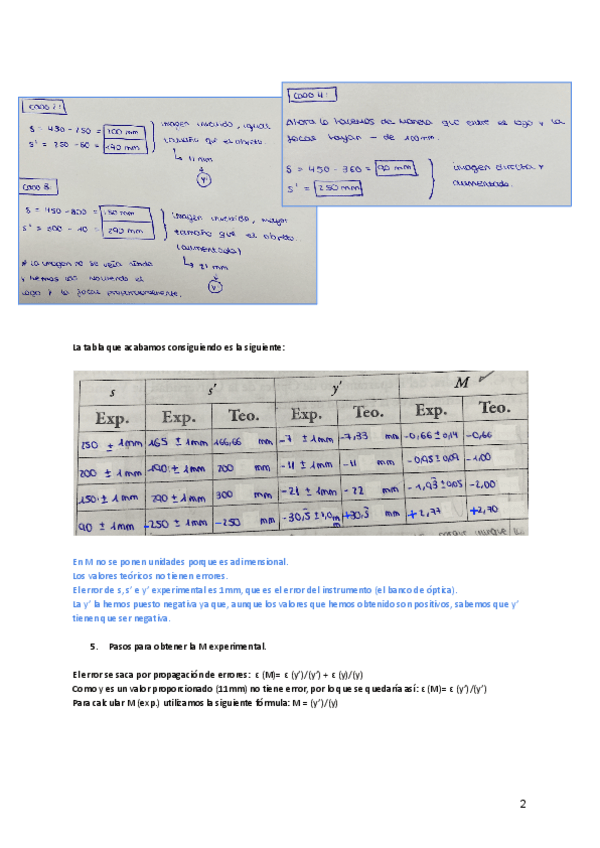 CASO 2:
S = 430 - 250 = 200 mm
S' = 250 - 60 = 190 mm
imagen invertida, igual
tamaño que el objeto.
↳ 11 mm
y'
CASO 3:
imagen invertida, mayor
tamaño que el objeto.
(aumentada)
↳ 21 mm
y'
* La imagen no se veía nítida
CASO 4:
Ahora lo hacemos de manera que entre el logo y la
focal hayan - de 100mm.
S = 450 - 360 = 90 mm
S' = 250 mm
imagen directa y
aumentada.
La tabla que acabamos consiguiendo es la siguiente:
s s' y' M
Exp. Exp. Teo. Exp. Teo. Exp. Teo.
250 ± 1mm 165 ± 1mm 166,66 mm -7 ± 1mm -7,33 mm -0,66 ± 0,14 -0,66
200 ± 1mm 190 ± 1mm 200 mm -11 ± 1mm -11 mm -0,95 ± 0,09 -1,00
150 ± 1mm 290 ± 1mm 300 mm -21 ± 1mm -22 mm -1,93 ± 0,05 -2,00
90 ± 1mm -250 ± 1mm -250 mm -30,5 ± 1,0 mm +30,3 mm +2,77 +2,70
En M no se ponen unidades porque es adimensional.
Los valores teóricos no tienen errores.
El error de s, s' e y' experimental es 1mm, que es el error del instrumento (el banco de óptica).
La y' la hemos puesto negativa ya que, aunque los valores que hemos obtenido son positivos, sabemos que y'
tienen que ser negativa.
5. Pasos para obtener la M experimental.
El error se saca por propagación de errores: ε (M)= ε (y')/(y') + ε (y)/(y)
Como y es un valor proporcionado (11mm) no tiene error, por lo que se quedaría así: ε (M)= ε (y')/(y')
Para calcular M (exp.) utilizamos la siguiente fórmula: M = (y')/(y)
2